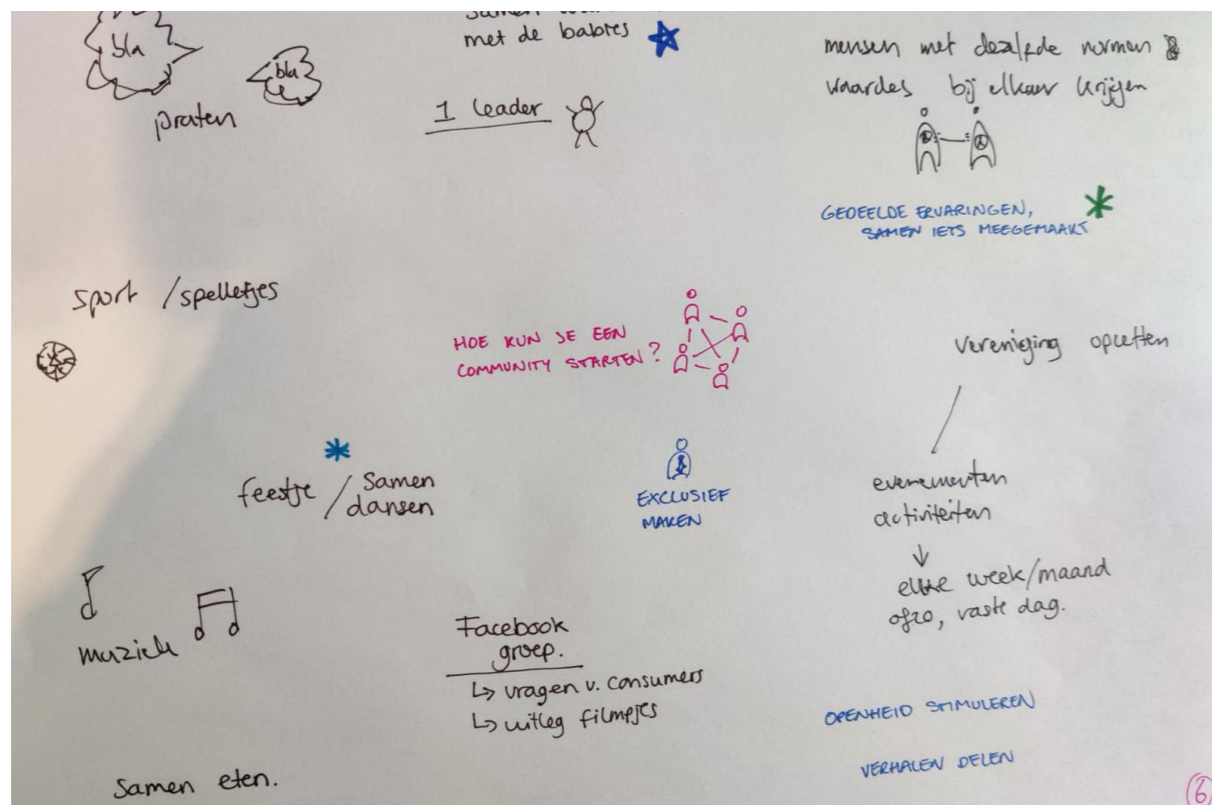 bla
bla
praten
samen
met de babies
1 leader
mensen met dezelfde normen &
waardes bij elkaar krijgen
GEDEELDE ERVARINGEN,
SAMEN IETS MEEGEMAAKT
sport / spelletjes
HOE KUN JE EEN
COMMUNITY STARTEN?
vereniging opzetten
feestje / samen
dansen
EXCLUSIEF
MAKEN
evenementen
activiteiten
elke week/maand
ofzo, vaste dag.
muziek
Facebook
groep.
↳ vragen v. consumers
↳ uitleg filmpjes
OPENHEID STIMULEREN
VERHALEN DELEN
samen eten.
6